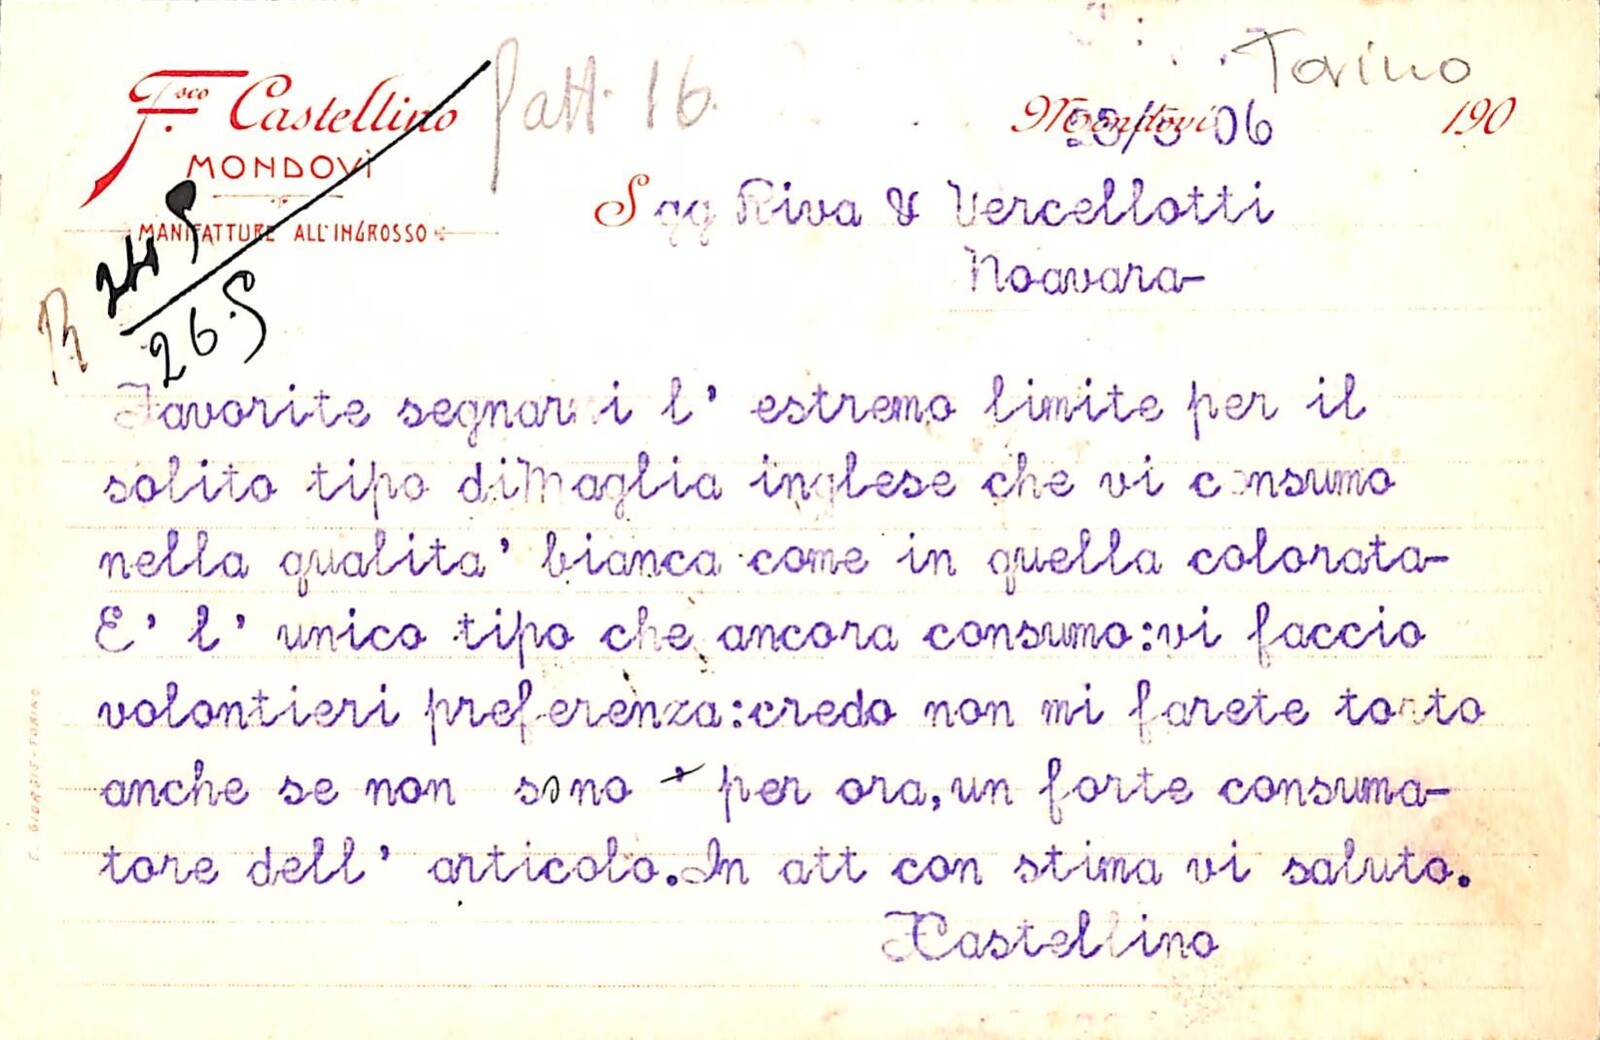 Torino
F.sco Castellino
fatt. 16.
Mondovì 190
25/5 06
MONDOVÌ
MANIFATTURE ALL'INGROSSO
Sgg Riva & Vercellotti
Noavara-
R
24 5
26.5
Favorite segnarmi l' estremo limite per il
solito tipo diMaglia inglese che vi consumo
nella qualita' bianca come in quella colorata-
E' l' unico tipo che ancora consumo:vi faccio
volontieri preferenza:credo non mi farete torto
anche se non sono ' per ora,un forte consuma-
tore dell' articolo.In att con stima vi saluto.
FCastellino
C. GIORGIS-TORINO